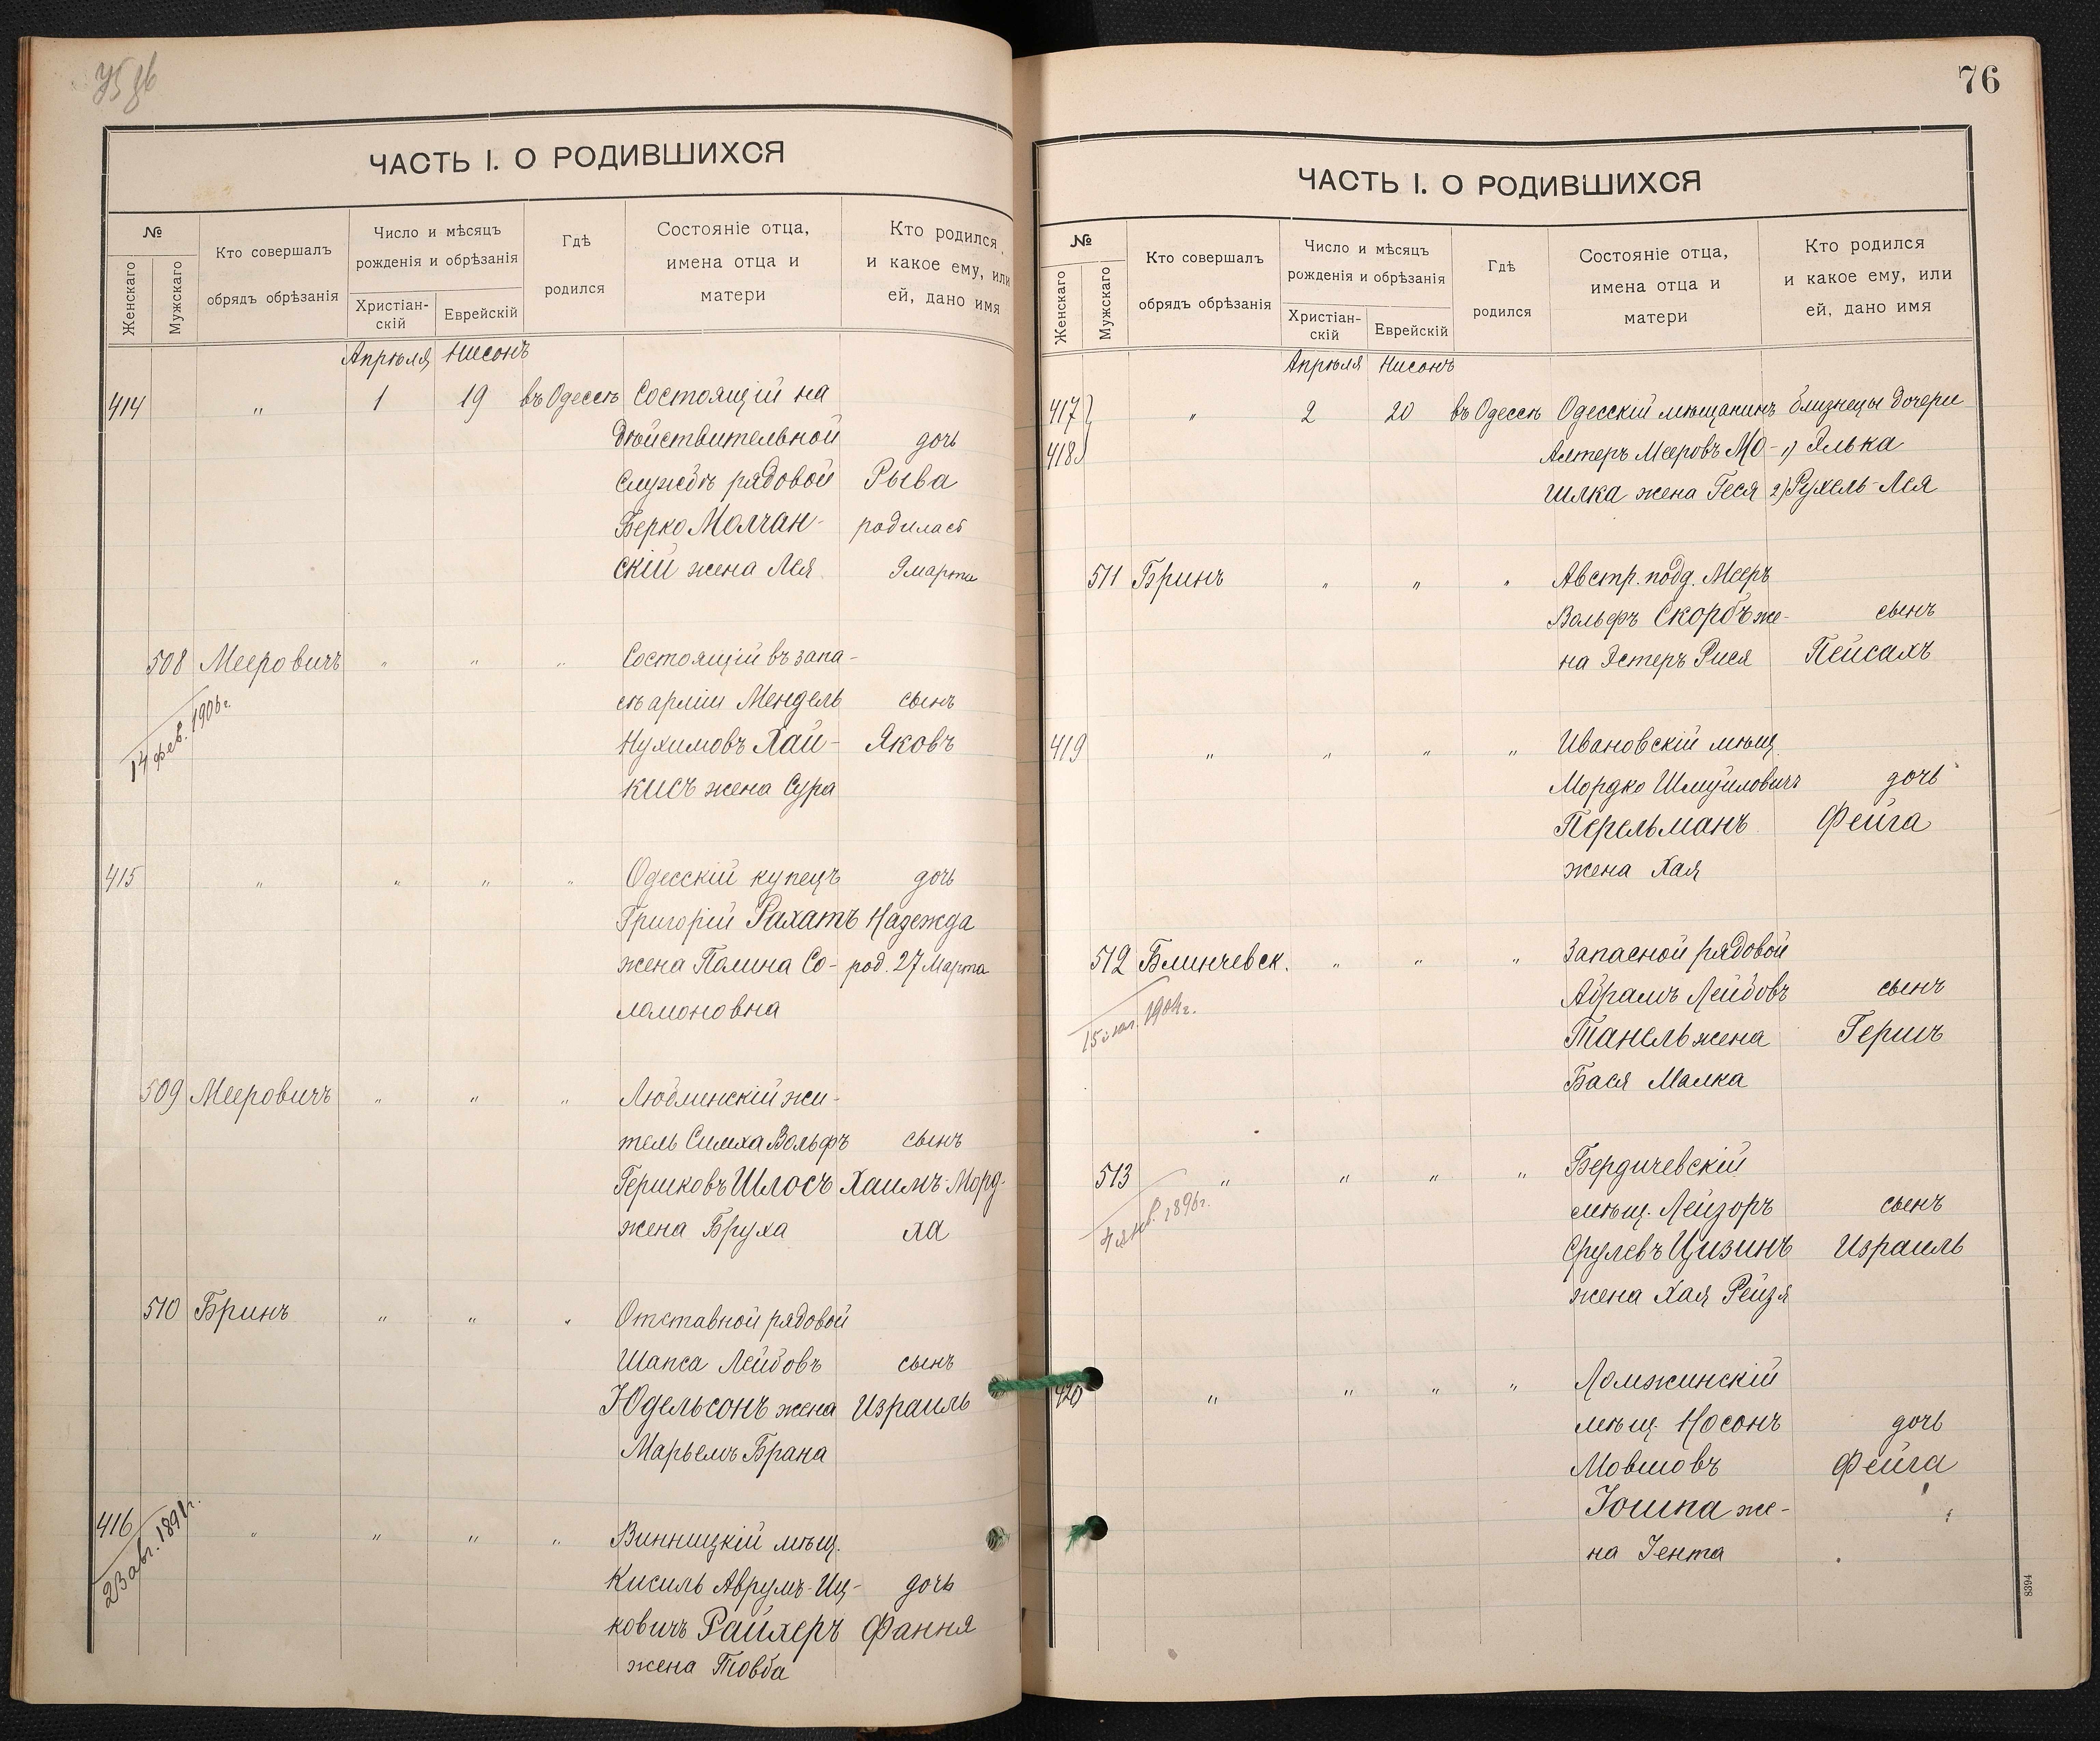 ЧАСТЬ I. О РОДИВШИХСЯ
№
Женскаго
Мужскаго
Кто совершалъ
обрядъ обрѣзанія
Число и мѣсяцъ
рожденія и обрѣзанія
Христіан-
скій
Еврейскій
Гдѣ
родился
Состояніе отца,
имена отца и
матери
Кто родился
и какое ему, или
ей, дано имя
Апрѣля Нисонъ
414 " 1 19 въ Одессѣ Состоящій на
дѣйствительной дочь
службѣ рядовой Рыва
Берко Молчан- родилась
скій жена Лея 9 марта
508 Мееровичъ " " " Состоящій въ запа-
14 фев. 1906 г.
сѣ арміи Мендель сынъ
Нухимовъ Хай- Яковъ
кисъ жена Сура
415 " " " " Одесскій купецъ дочь
Григорій Рахатъ Надежда
жена Полина Со- род. 27 Марта
ломоновна
509 Мееровичъ " " " Люблинскій жи-
тель Симха Вольфъ сынъ
Гершковъ Шлосъ Хаимъ-Морд-
жена Бруха ха
510 Бринъ " " " Отставной рядовой
Шапса Лейбовъ сынъ
Юдельсонъ жена Израиль
Марьемъ Брана
416 " " " " Винницкій мѣщ.
23 авг. 1891 г.
Кисиль Аврумъ-Иц- дочь
ковичъ Райхеръ Фання
жена Товба
76
ЧАСТЬ I. О РОДИВШИХСЯ
№
Женскаго
Мужскаго
Кто совершалъ
обрядъ обрѣзанія
Число и мѣсяцъ
рожденія и обрѣзанія
Христіан-
скій
Еврейскій
Гдѣ
родился
Состояніе отца,
имена отца и
матери
Кто родился
и какое ему, или
ей, дано имя
Апрѣля Нисонъ
417 " 2 20 въ Одессѣ Одесскій мѣщанинъ близнецы дочери
418 Алтеръ Мееровъ Мо- 1) Элька
шлка жена Геся 2) Рухель-Лея
511 Бринъ " " " Австр. подд. Мееръ
Вольфъ Скорбъ же- сынъ
на Эстеръ Рися Пейсахъ
419 " " " " Ивановскій мѣщ.
Мордко Шмуйловичъ дочь
Перельманъ Фейга
жена Хая
512 Блинчевск. " " " Запасной рядовой
15 1904 г.
Абрамъ Лейбовъ сынъ
Танель жена Гершъ
Бася Малка
513 " " " " Бердичевскій
4 янв. 1896 г.
мѣщ. Лейзоръ сынъ
Срулевъ Цизинъ Израиль
жена Хая Рейзя
420 " " " " Ломжинскій
мѣщ. Носонъ дочь
Мовшовъ Фейга
Іошпа же-
на Іента
8394